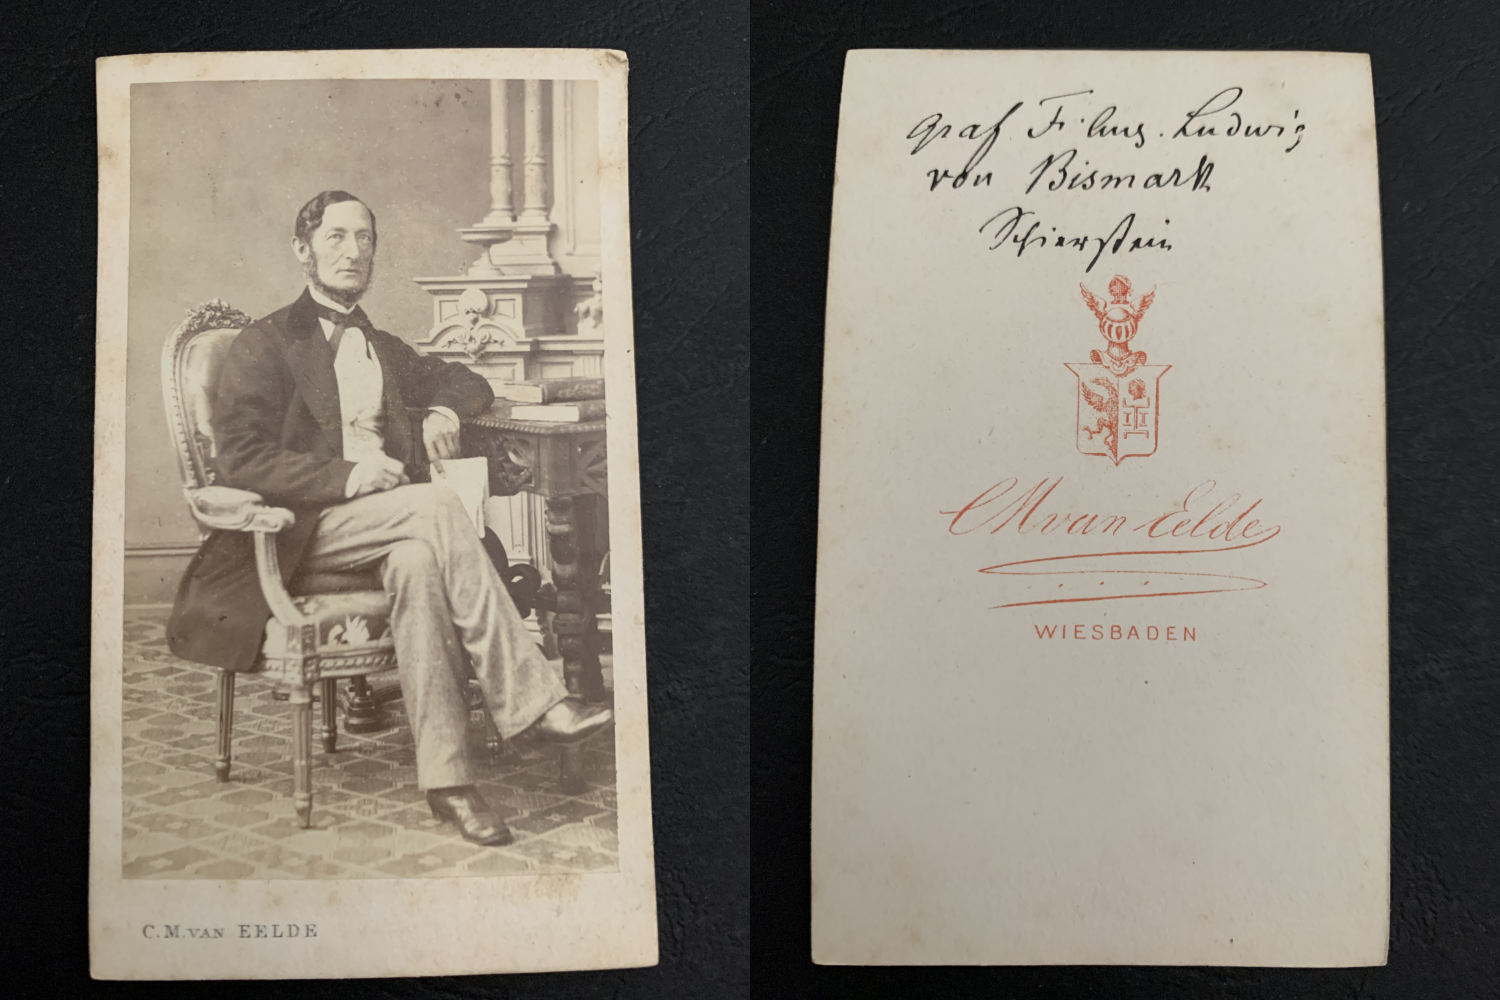 C.M. VAN EELDE
Graf F. Aug. Ludwig
von Bismark
Schierstein
CM van Eelde
WIESBADEN